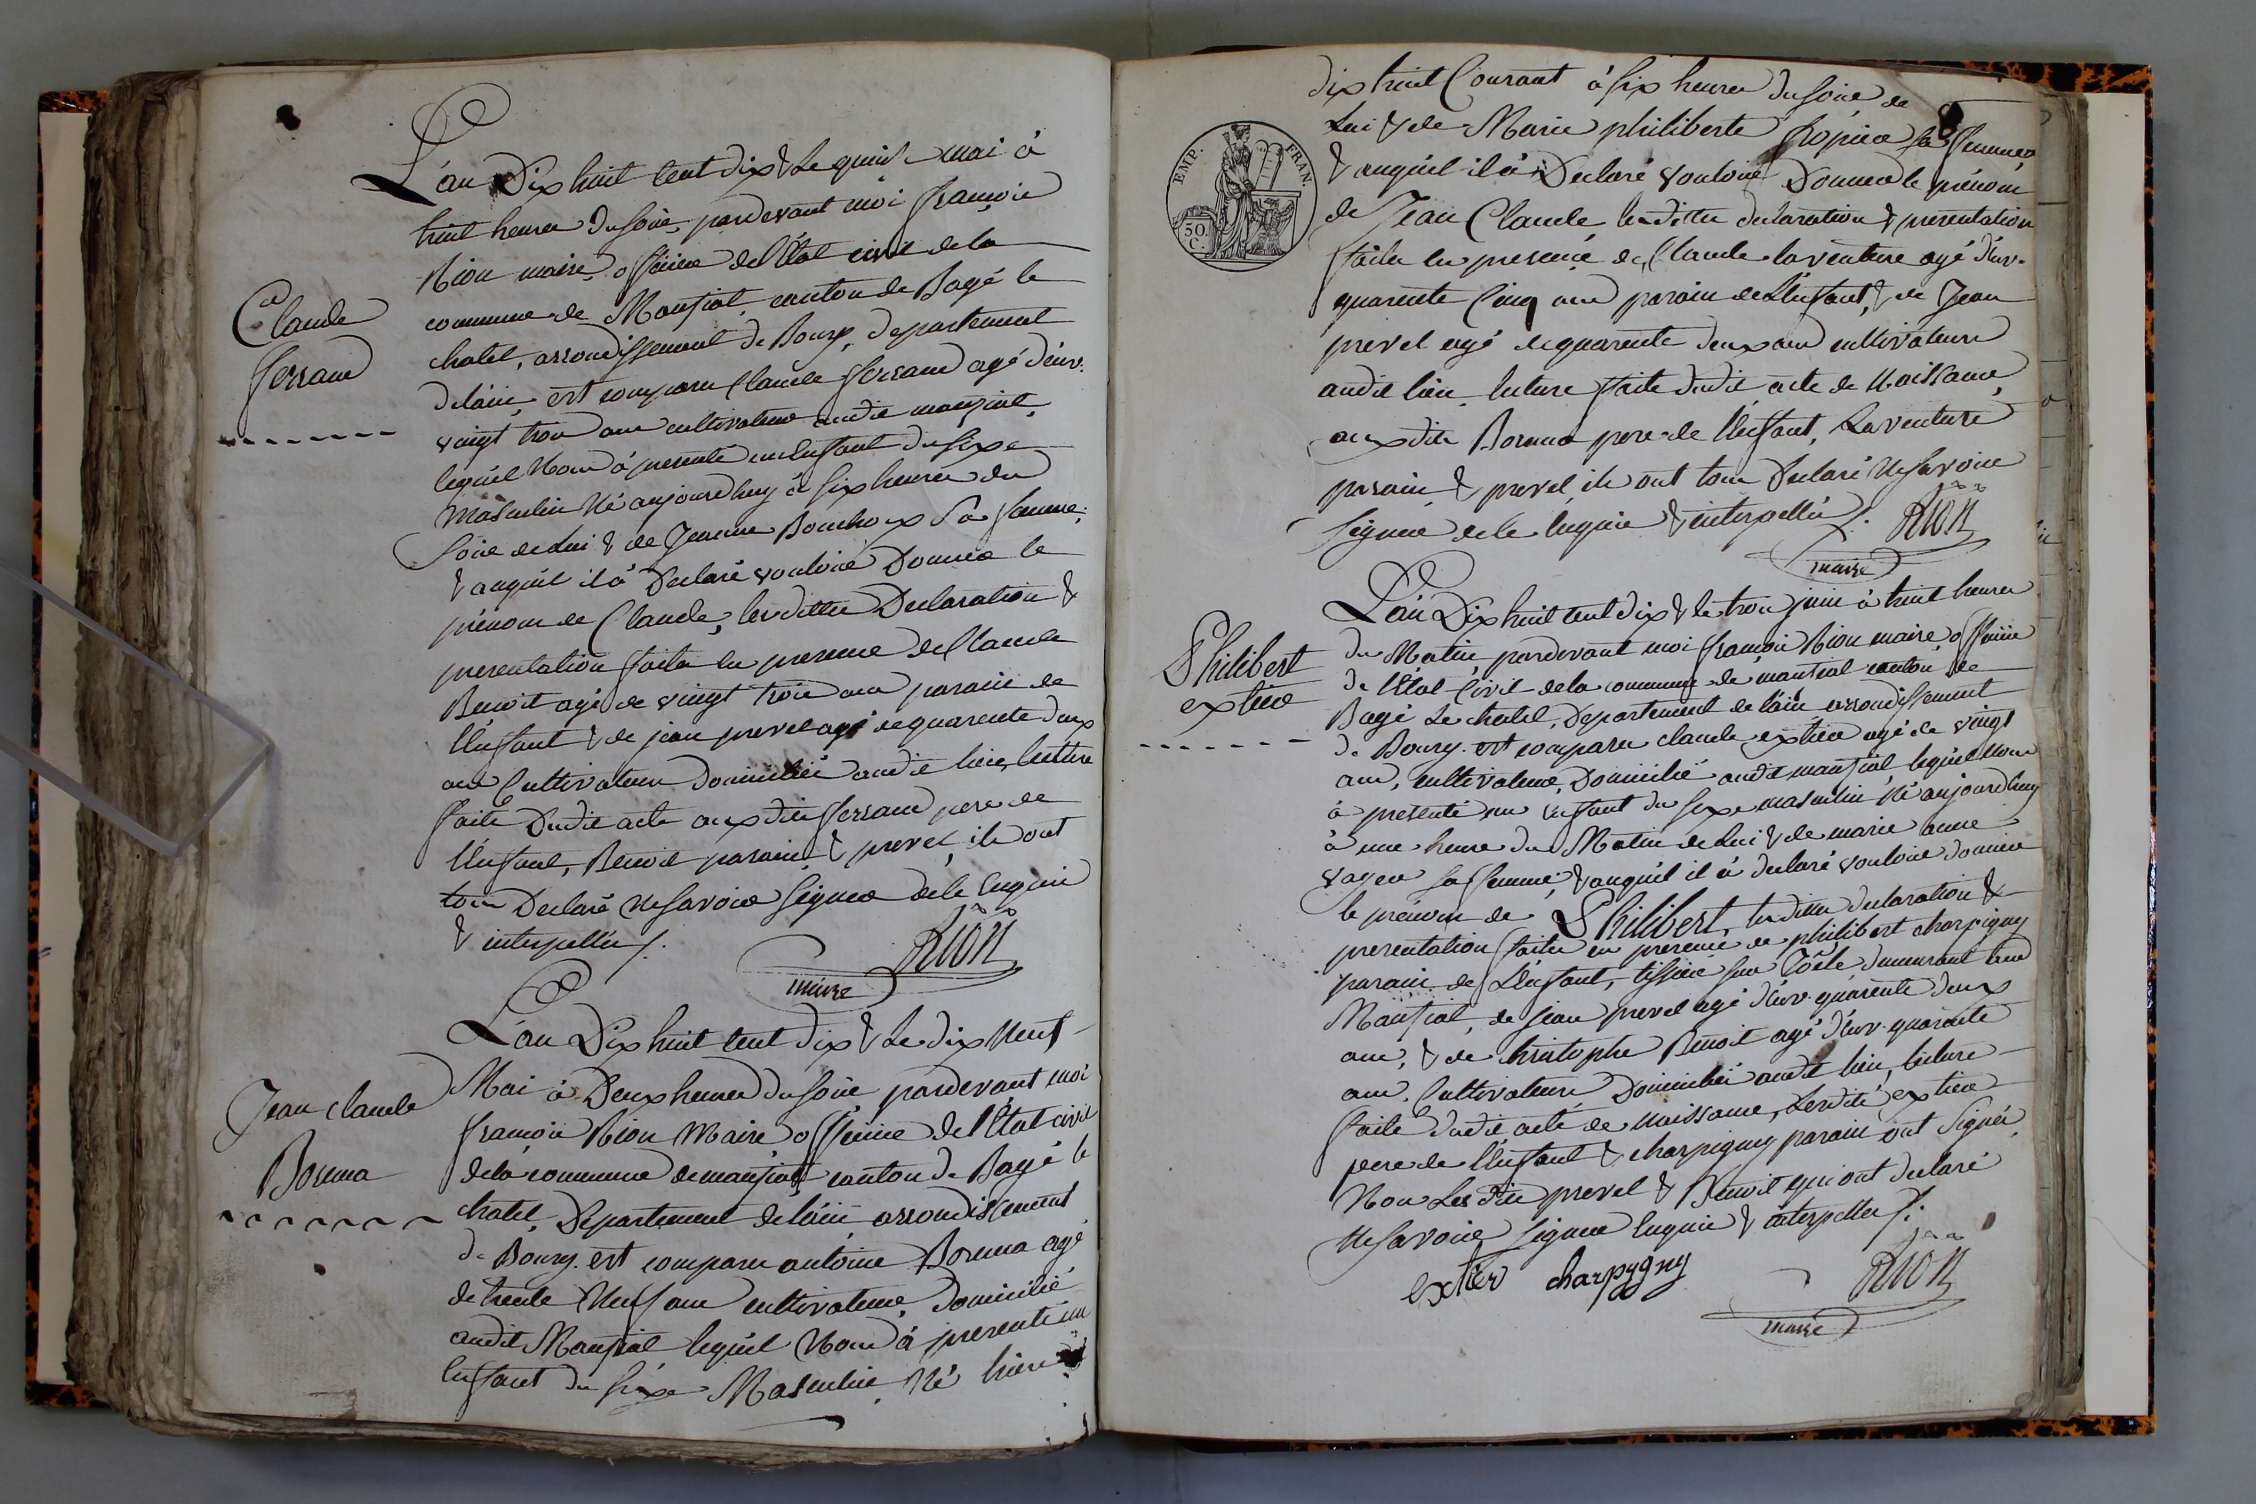 Claude
ferrand
L'an Dix huit cent dix & Le quinze mai à
huit heures du soir, pardevant moi françois
Rion maire, officier de l'état civil de la
commune de Mansiat, canton de Bagé le
chatel, arrondissement de Bourg, departement
de l'ain, est comparu Claude ferrand agé d'env.
vingt trois ans cultivateur audit mansiat,
lequel Nous à presenté un Enfant du sixe
masculin Né aujourdhuy à six heures du
soir de Lui & de Jeanne Bouchoux Sa femme,
& auquél il à Declaré vouloir Donner le
prénom de Claude, lesdittes Declaration &
presentation faites en presence de Claude
Benoit agé de vingt trois ans parain de
l'Enfant & de jean prevel agé de quarente deux
ans Cultivateurs domiciliés audit lieu, lecture
faite Dudit acte auxdits ferrand pere de
l'Enfant, Benoit parain & prevel, ils ont
tous Declaré Ne savoir Signer de le Enquis
& interpellés /.
Rion
maire
Jean claude
Borma
L'an Dix huit cent dix & Le dix Neuf
Mai à Deux heures du soir pardevant moi
françois Rion Maire officier de l'État civil
de la commune de mansiat canton de Bagé le
chatel, Departement de l'ain arrondissement
de Bourg. est comparu antoine Borma agé
de trente Neuf ans cultivateur, domicilié
audit Mansiat lequél Nous à presenté un
Enfant du sixe Masculin, Né hier
EMP. FRAN.
50.
C.
dix huit Courant à six heures du soir de
Lui & de Marie philiberte sa femme
& auquél il à Declaré vouloir Donner le prénom
de Jean Claude lesdittes declaration & presentation
faites en presence de Claude laventure agé d'env.
quarente Cinq ans parain de l'Enfant, & de Jean
prevel agé de quarente deux ans cultivateurs
audit lieu, lecture faite dudit acte de Naissance,
auxdits Borma pere de l'Enfant, Laventure
parain & prevel, ils ont tous Declaré Ne savoir
Signer de le Enquis & interpellés /.
Rion
maire
Philibert
extier
L'an Dix huit cent dix & le trois juin à huit heures
du Matin, pardevant moi françois Rion maire, officier
de l'État Civil de la commune de mansiat canton de
Bagé Le chatel, Departement de l'ain arrondissement
de Bourg. est comparu claude extier agé de vingt
ans, cultivateur, Domicilié audit mansiat lequél Nous
à presenté un Enfant du sexe masculin Né aujourdhuy
à une heure du Matin de Lui & de marie anne
vayer sa femme, & auquél il à declaré vouloir donner
le prénom de Philibert, lesdittes declaration &
presentation faites en presence de philibert charpigny
parain de L'Enfant, tissier sur Toile demeurant aud
Mansiat, de jean prevel agé d'env. quarente deux
ans, & de christophe Benoit agé d'env. quarante
ans. Cultivateurs Domiciliés audit lieu, lecture
faite dudit acte de naissance, Lesdits extier
pere de l'Enfant & charpigny parain ont Signés,
Non Les dits prevel & Benoit qui ont declaré
Ne savoir signer Enquis & interpellés /.
extier charpygny
Rion
maire